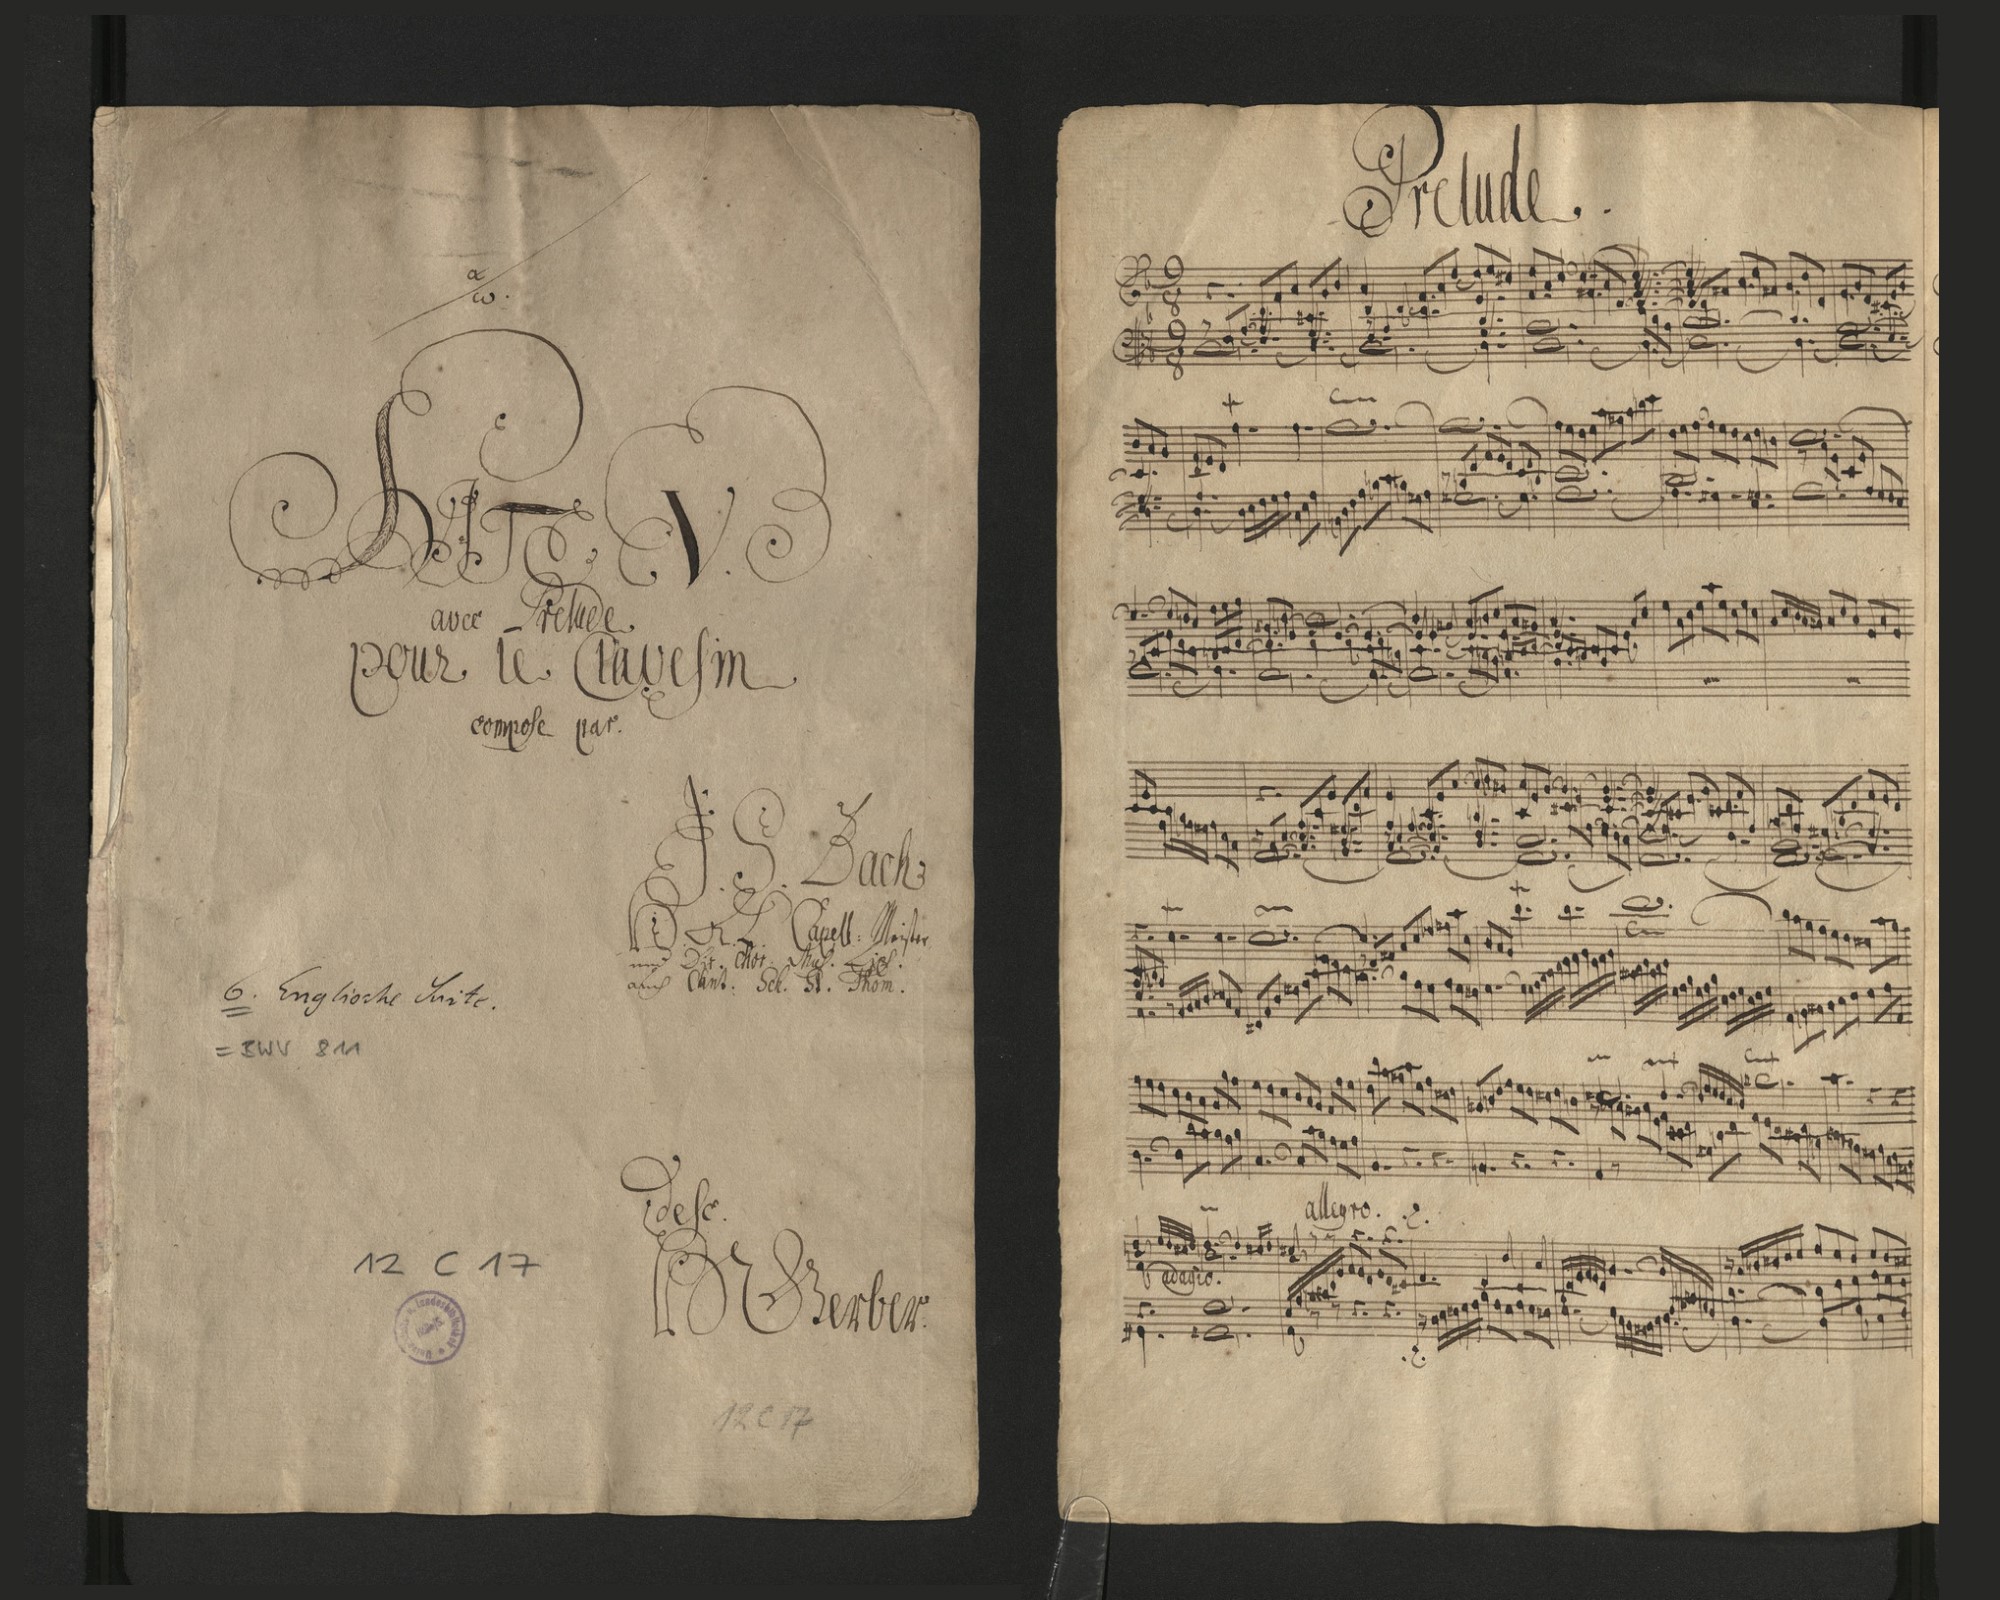 α
ω.
SUITE V.
avec Prelude.
pour le Clavesin
compose par.
J. S. Bach
Capell: Meister
und Dir. Chor. Mus. Lips.
auch Cant: Sch. St. Thom.
6. Englische Suite.
= BWV 811
desc.
HNGerber.
12 C 17
12 C 17
Prelude.
allegro.
adagio.